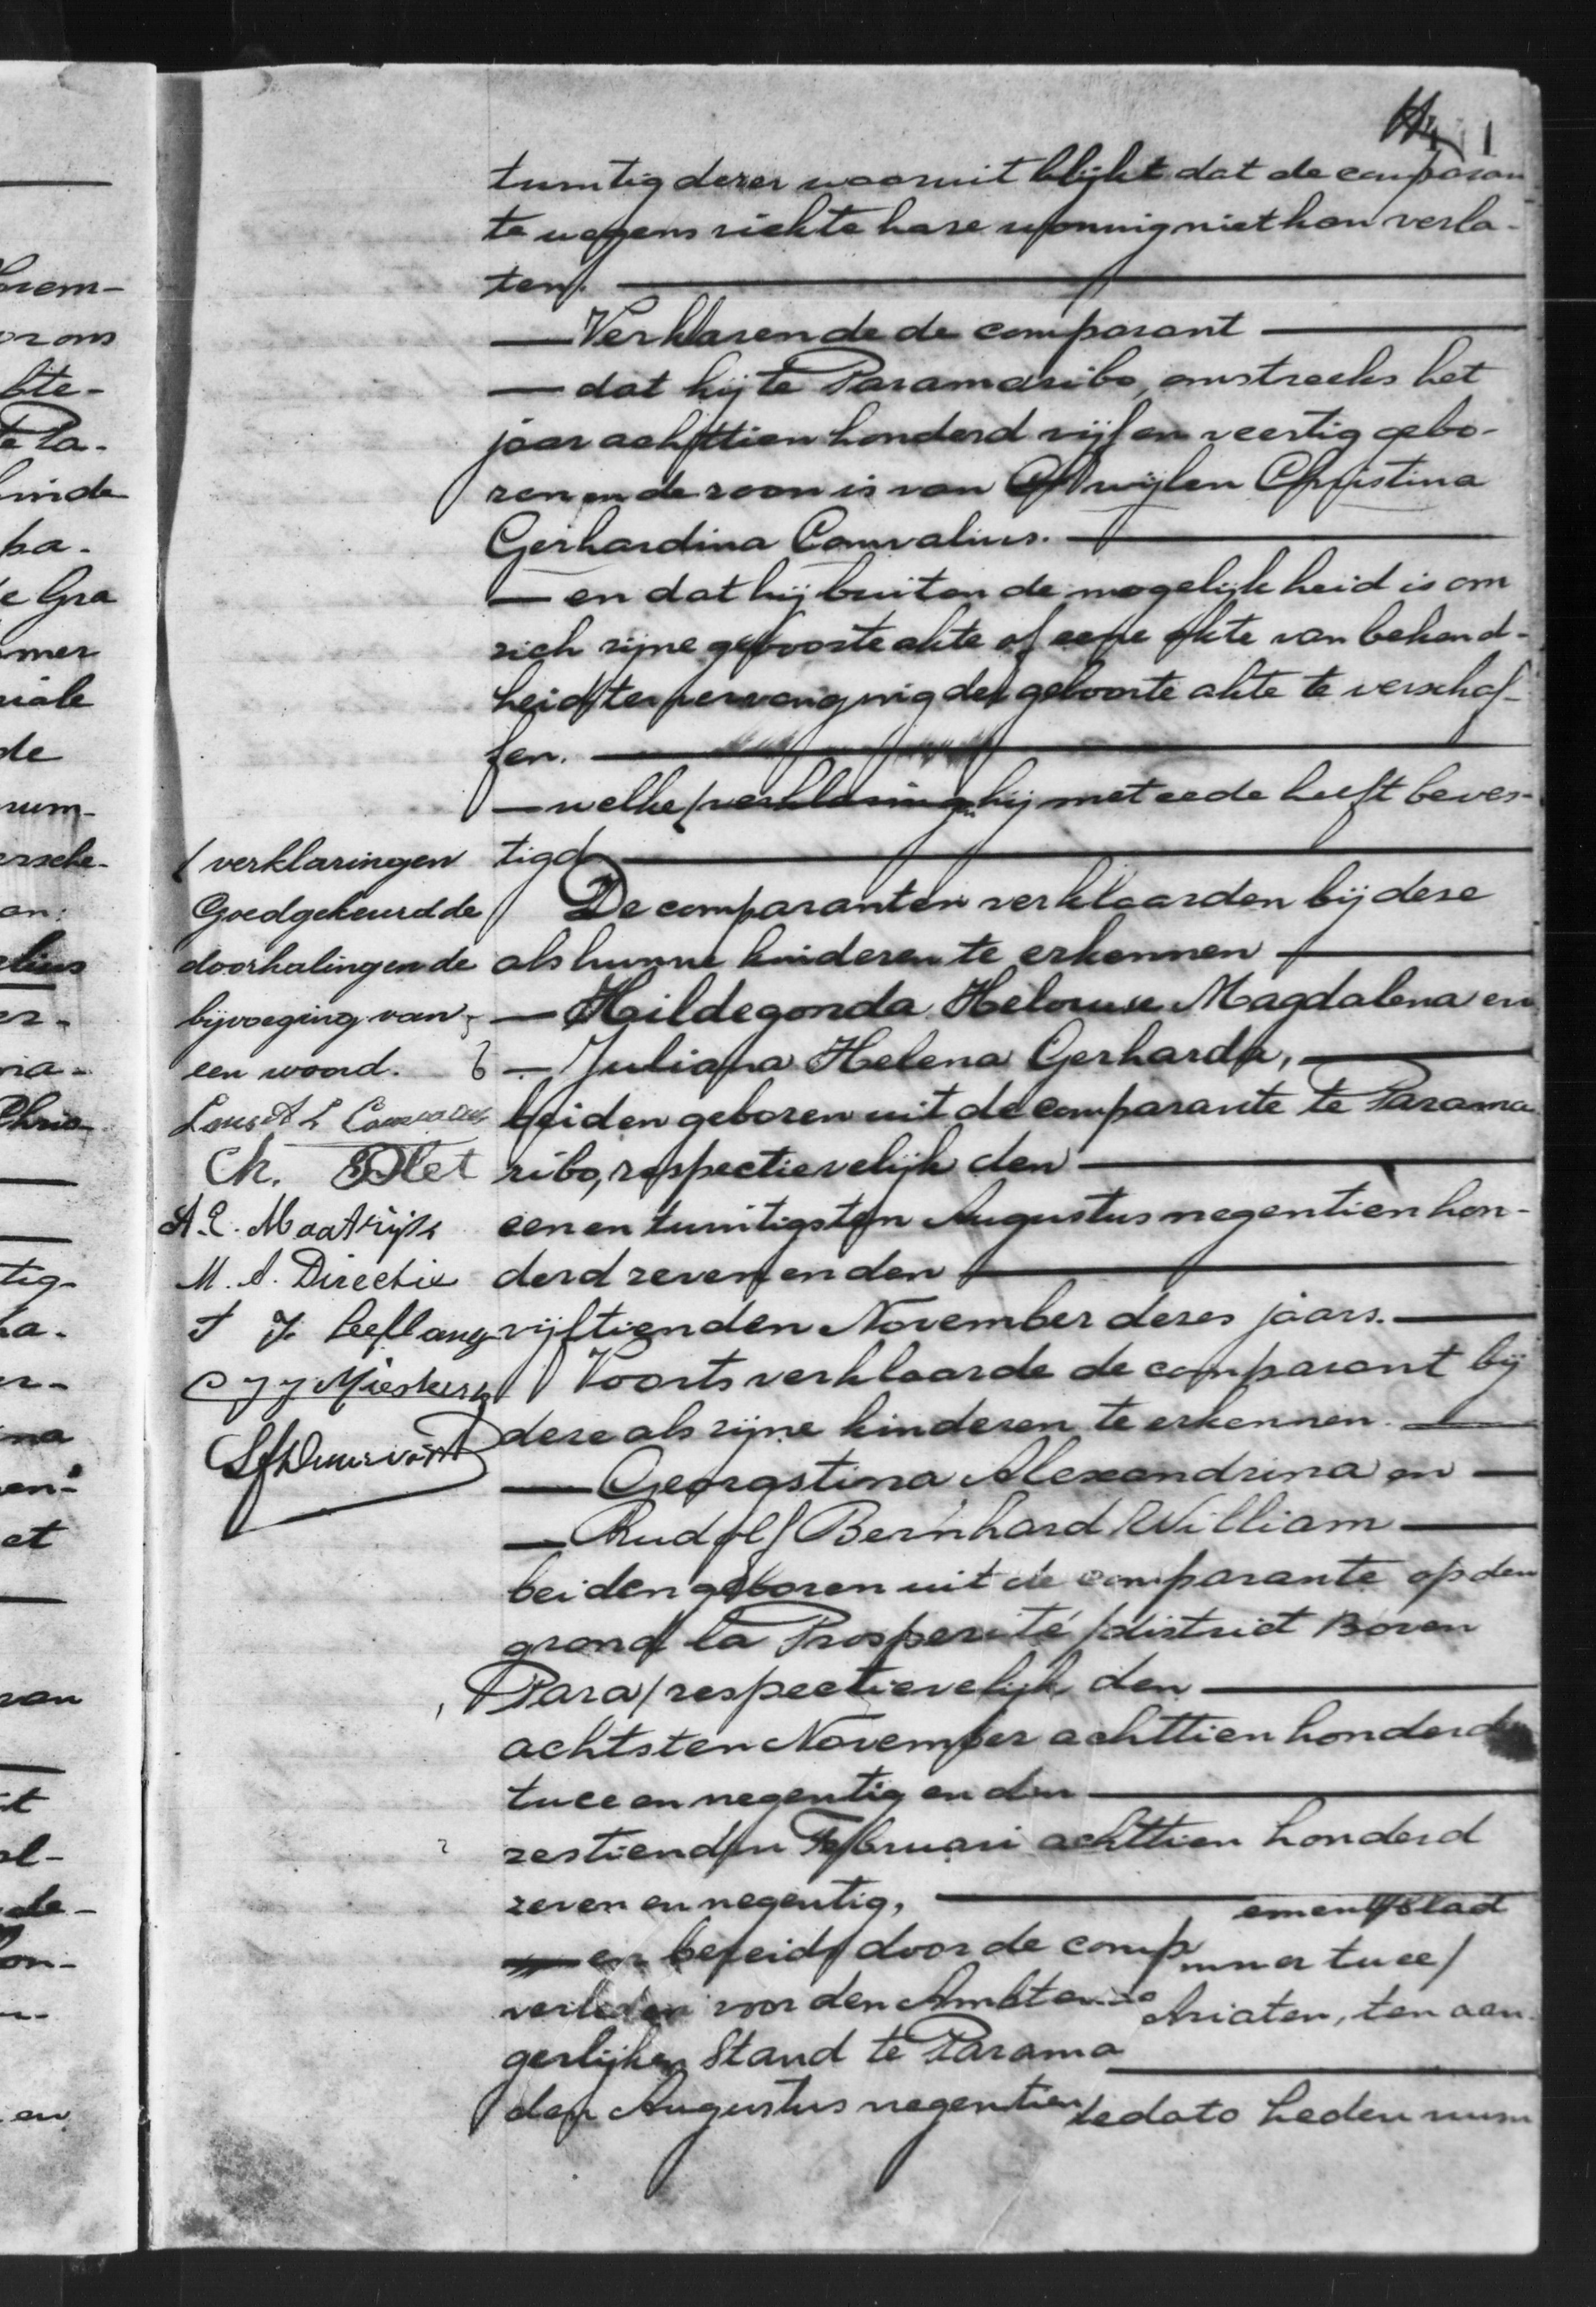 1
twintig dezer waaruit blijkt dat de comparan
te wegens ziekte hare woning niet kan verla-
ten.
Verklarende de comparant
dat hij te Paramaribo, omstreeks het
jaar achttien honderd vijf en veertig gebo-
ren en de zoon is van wijlen Christina
Gerhardina Comvalius.
en dat hij buiten de mogelijkheid is om
zich zijne geboorte akte of eene akte van bekend-
heid ter vervanging der geboorte akte te verschaf-
fen.
welke / verklaring hij met eede heeft beves-
tigd
De comparanten verklaarden bij deze
als hunne kinderen te erkennen
Hildegonda Helouise Magdalena en
Juliana Helena Gerharda,
beiden geboren uit de comparante te Parama
ribo, respectievelijk den
een en twintigsten Augustus negentien hon-
derd zeven en den
vijftienden November dezes jaars.
Voorts verklaarde de comparant bij
deze als zijne kinderen te erkennen.
Georgstina Alexandrina en
Rudolf Bernhard William
beiden geboren uit de comparante op den
grond la Prosperité / district Boven
Para / respectievelijk den
achtsten November achttien honderd
twee en negentig en den
zestienden Februari achttien honderd
zeven en negentig,
en beiden door de comp
verleden voor den Ambtena
gerlijken Stand te Parama
den Augustus negentien
ementsblad
mmer twee /
chriaten, ten aan
dedato heden num
/ verklaringen
Goedgekeurd de
doorhaling en de
bijvoeging van
een woord.
Louis A L Comvalius
Ch. Plet
A. L. Maatrijk
M. A. Directie
J J. Leeflang
C J J Mieskerk